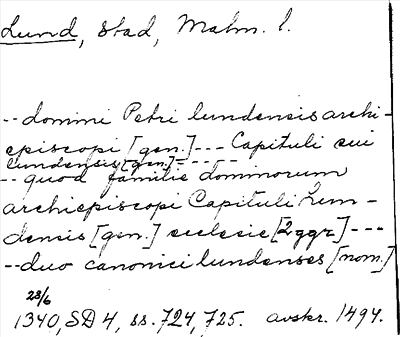 Lund, stad, Malm. l.
-- domini Petri lundensis archi-
episcopi [gen.] --- Capituli sui
lundensis [gen.] - - - - -
-- quod familie dominorum
archiepiscopi Capituli Lun-
densis [gen.] ecclesie [2 ggr] ---
-- duo canonici lundenses [nom.]
23/6
1340, SD 4, ss. 724, 725. avskr. 1494.